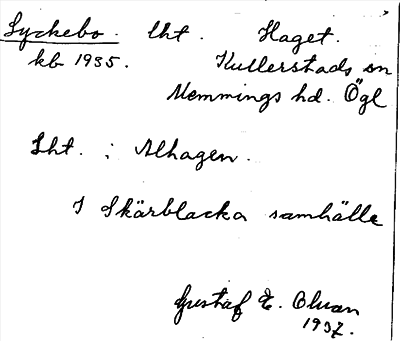 Lyckebo. lht. Haget.
kb 1935. Kullerstads sn
Memmings hd. Ögl
Lht. i Alhagen.
I Skärblacka samhälle
Gustaf E.
1937.